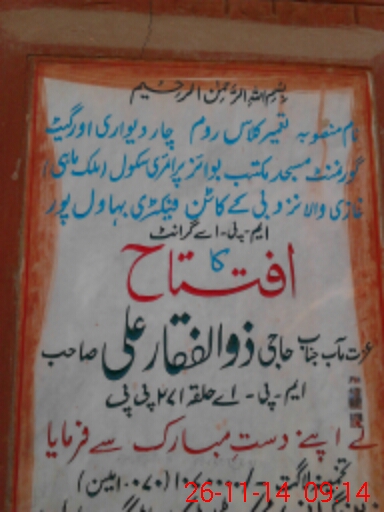 بسم اللہ الرحمٰن الرحیم
نام منصوبہ تعمیر کلاس روم چار دیواری اور گیٹ
گورنمنٹ مسجد مکتب بوائز پرائمری سکول (ملک ماہی)
غازی والا نزد بی کے کاٹن فیکٹری بہاول پور
ایم-پی-اے گرانٹ
کا
افتتاح
عزت مآب جناب حاجی ذوالفقار علی صاحب
ایم-پی-اے حلقہ ۲۷۱ پی پی
نے اپنے دست مبارک سے فرمایا
تخمینہ لاگت
26-11-14 09:14